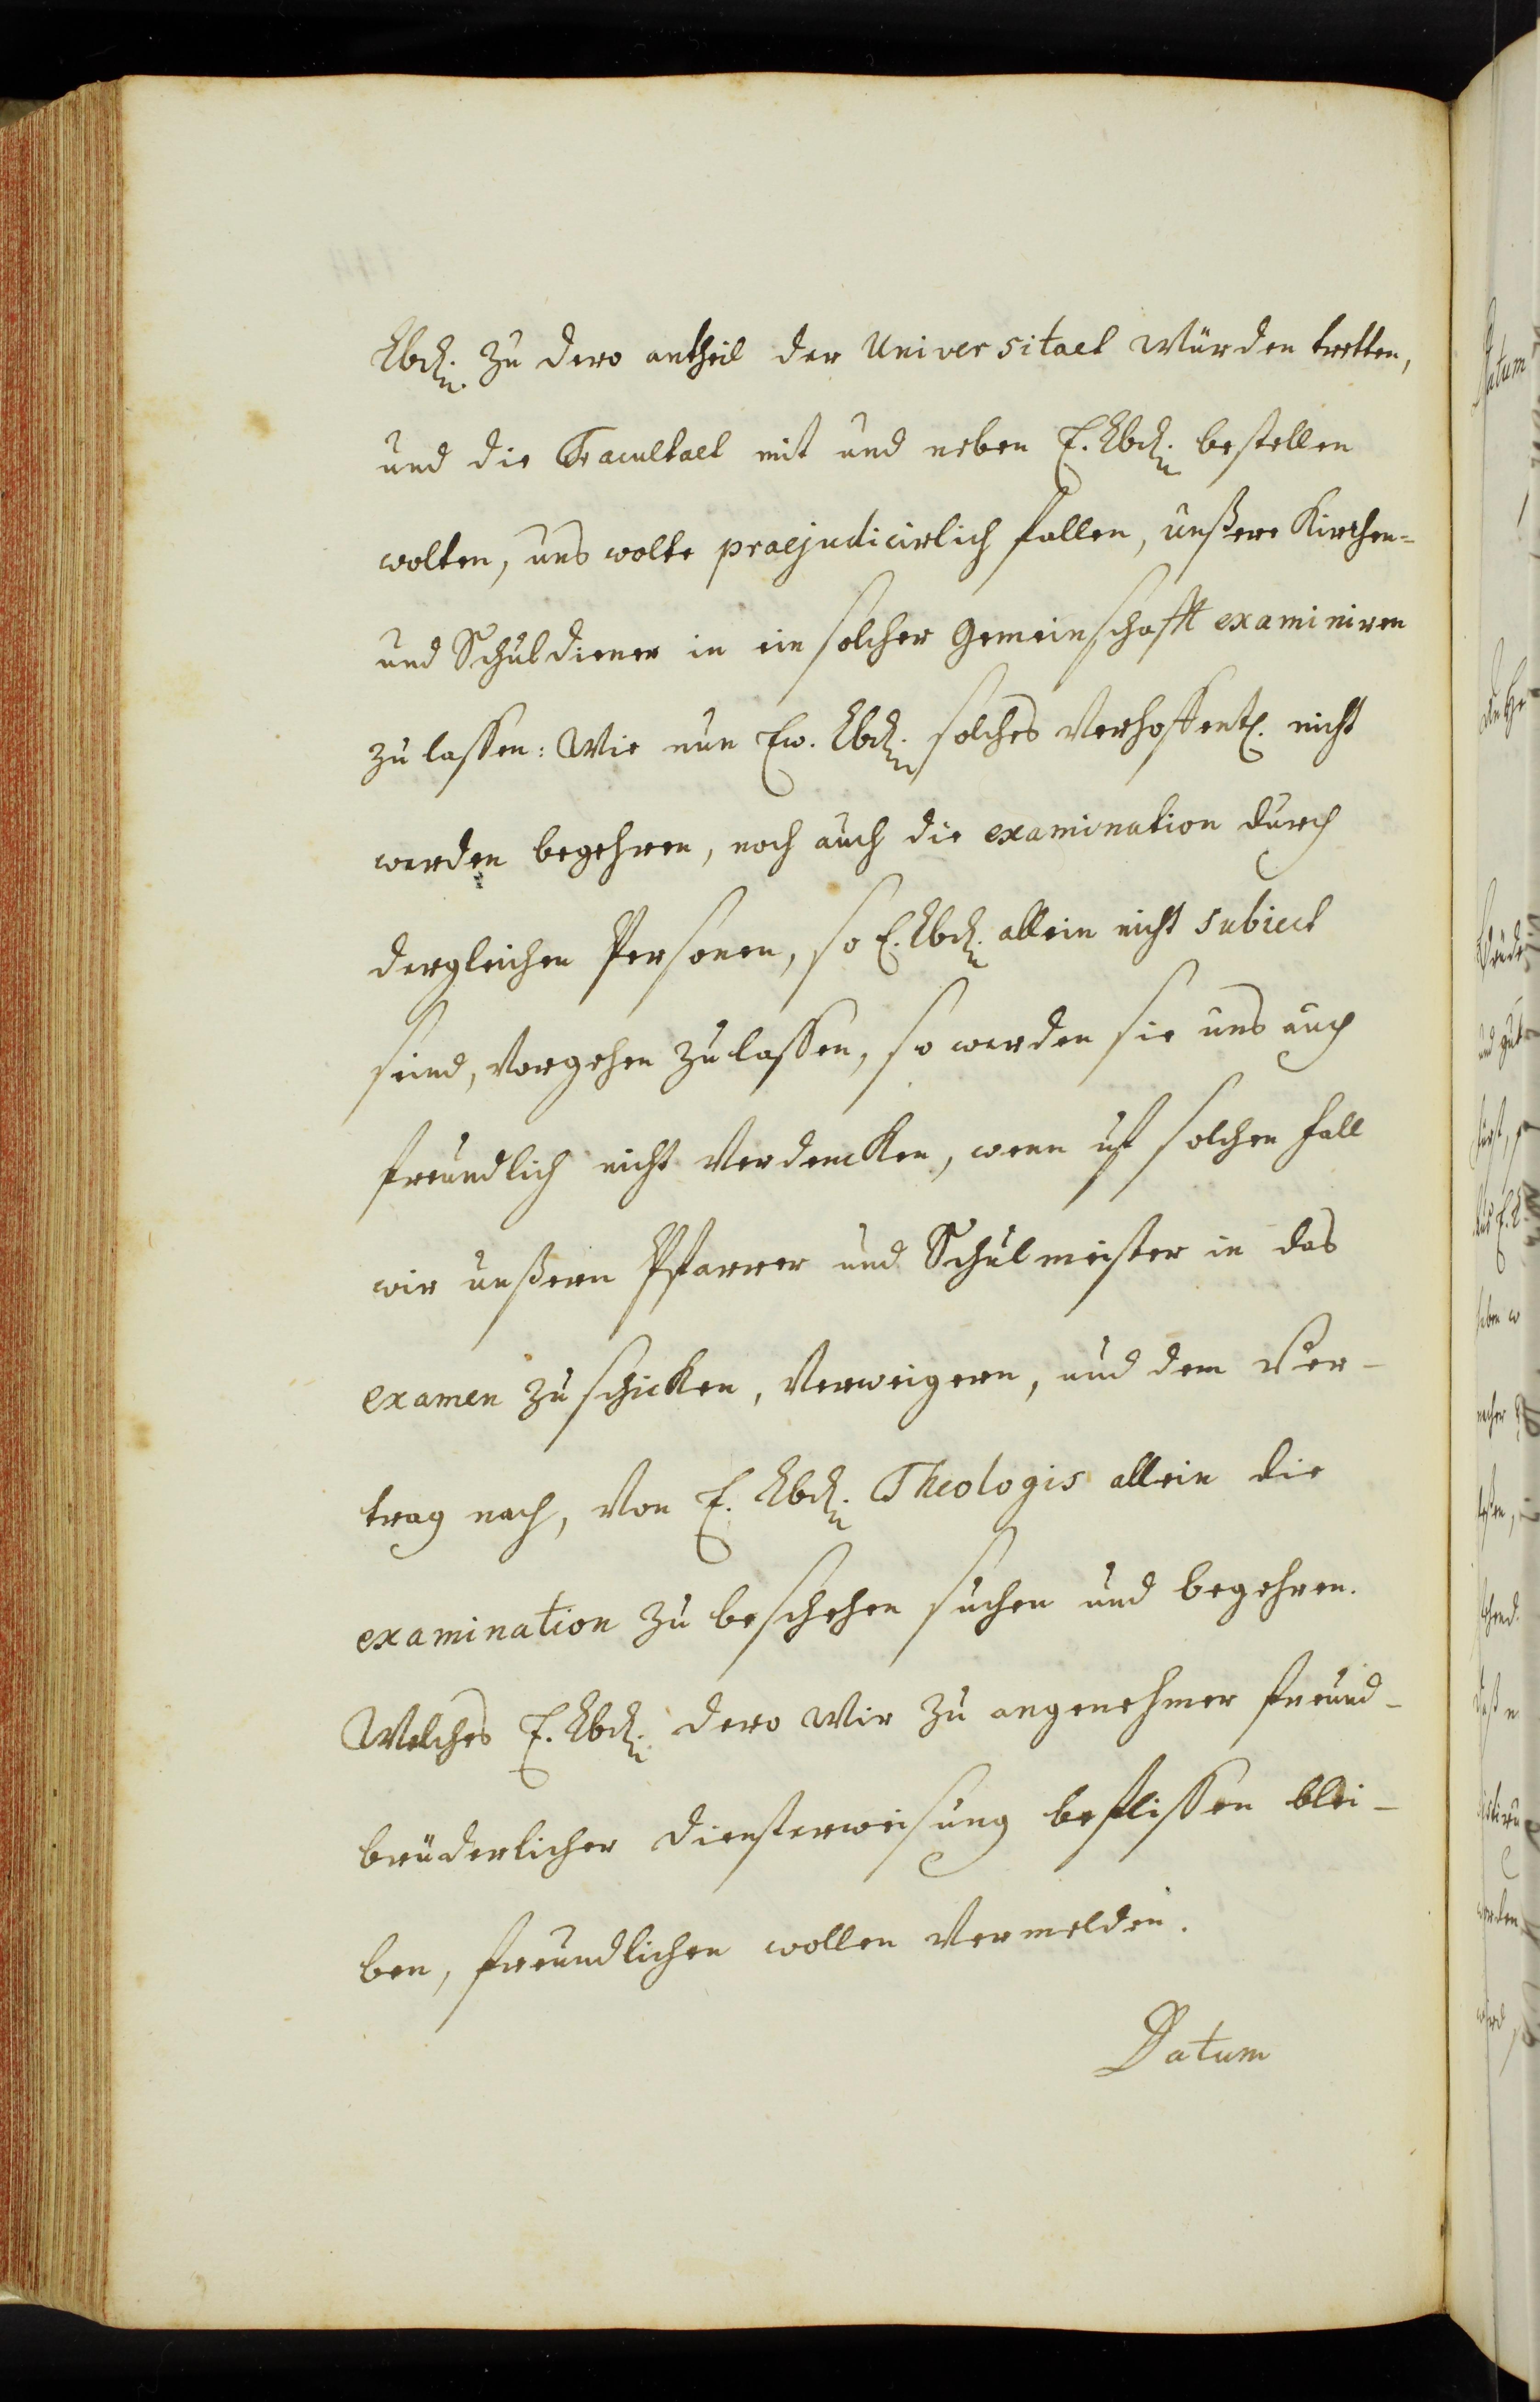 Lbd. zu dero antheil der Universitaet würden tretten,
und die Facultaet mit und neben E. Lbd. bestellen
wolten, uns wolte praejudicirlich fallen, unßere Kirchen-
und Schuldiener in ein solcher Gemeinschafft examiniren
zu lassen: Wie nun Ew. Lbd. solches verhoffentl. nicht
werden begehren, noch auch die examination durch
dergleichen Personen, so E. Lbd. allein nicht subiect
sind, vorgehen zu lassen, so werden sie uns auch
freundlich nicht verdencken, wenn uf solchen fall
wir unßern Pfarrer und Schulmeister in das
examen zu schicken, verweigern, und dem Ver-
trag nach, von E. Lbd. Theologis allein die
examination zu beschehen suchen und begehren.
Welches E. Lbd. dero wir zu angenehmer freund-
brüderlicher diensterweisung beflissen blei-
ben, freundlichen wollen vermelden.
Datum